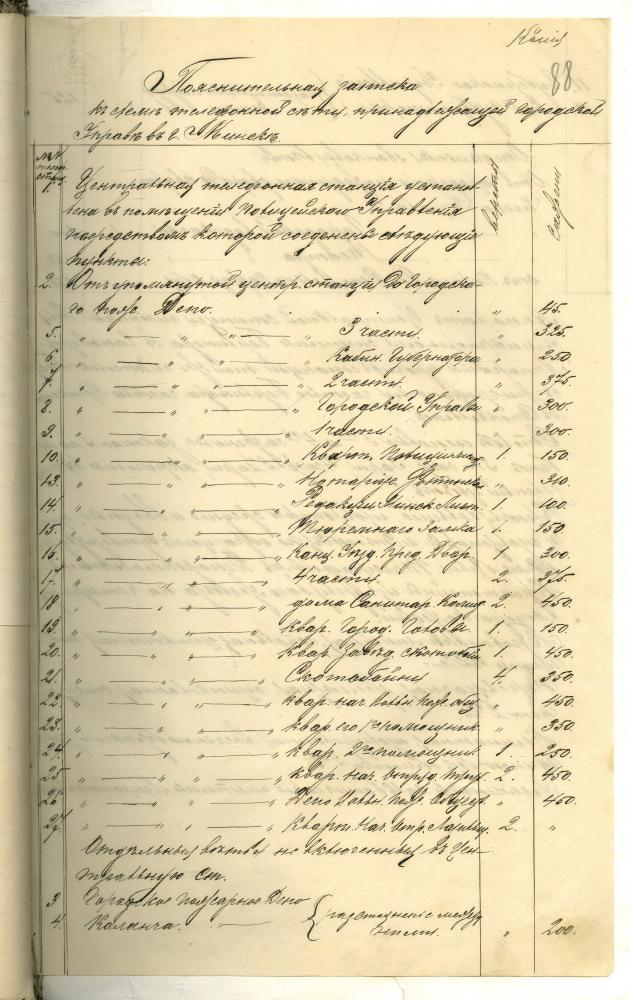 Копія
88
Пояснительная записка
къ схемѣ телефонной сѣти, принадлежащей Городской
Управѣ въ г. Минскѣ.
№№ станц. версты сажени
1. Центральная телефонная станція установ-
лена въ помѣщеніи Полицейскаго Управленія
посредствомъ которой соеденены слѣдующія
пункты:
2. Отъ упомянутой центр. станціи до Городска-
го пож. Депо. " 45.
5. " — " " — 3 части. " 325.
6. " — " " — Кабин. Губернатора " 250.
7. " — " " — 2 части. " 375.
8. " — " " — Городской Управы " 300.
9. " — " " — 1 части. " 300.
10. " — " " — Кварт. Полицийм. 1. 150.
13. " — " " — Нотаріус. " 310.
14. " — " " — Редакціи Минск. Лист. 1. 100.
15. " — " " — Тюремнаго Замка 1. 150.
16. " — " " — Канц. Губ. Пред. Двор. 1. 300.
17. " — " " — 4 части. 2. 375.
18 " — " " — дома Санитар. Коми 2. 450.
19. " — " " — квар. Город. Головы. 1. 150.
20. " — " " — квар. Завѣд. скотобой. 1. 450.
21. " — " " — Скотобойни 4. 350.
22. " — " " — квар. нач. Вольн. Пож. общ " 450.
23. " — " " — квар. его 1го помощник. " 350.
24. " — " " — квар. 2го помощник 1. 250.
25 " — " " — квар. нач. 2. 450.
26 " — " " — Депо Вольн. Пож. Общест. " 450.
27. " — " " — Кварт. Нач. 2. "
Отдѣльныя вѣтви не включенныя въ Цен-
тральную ст.
3 Городское пожарное Депо
4. Каланча. — { разстояніе между
ними. " 200.